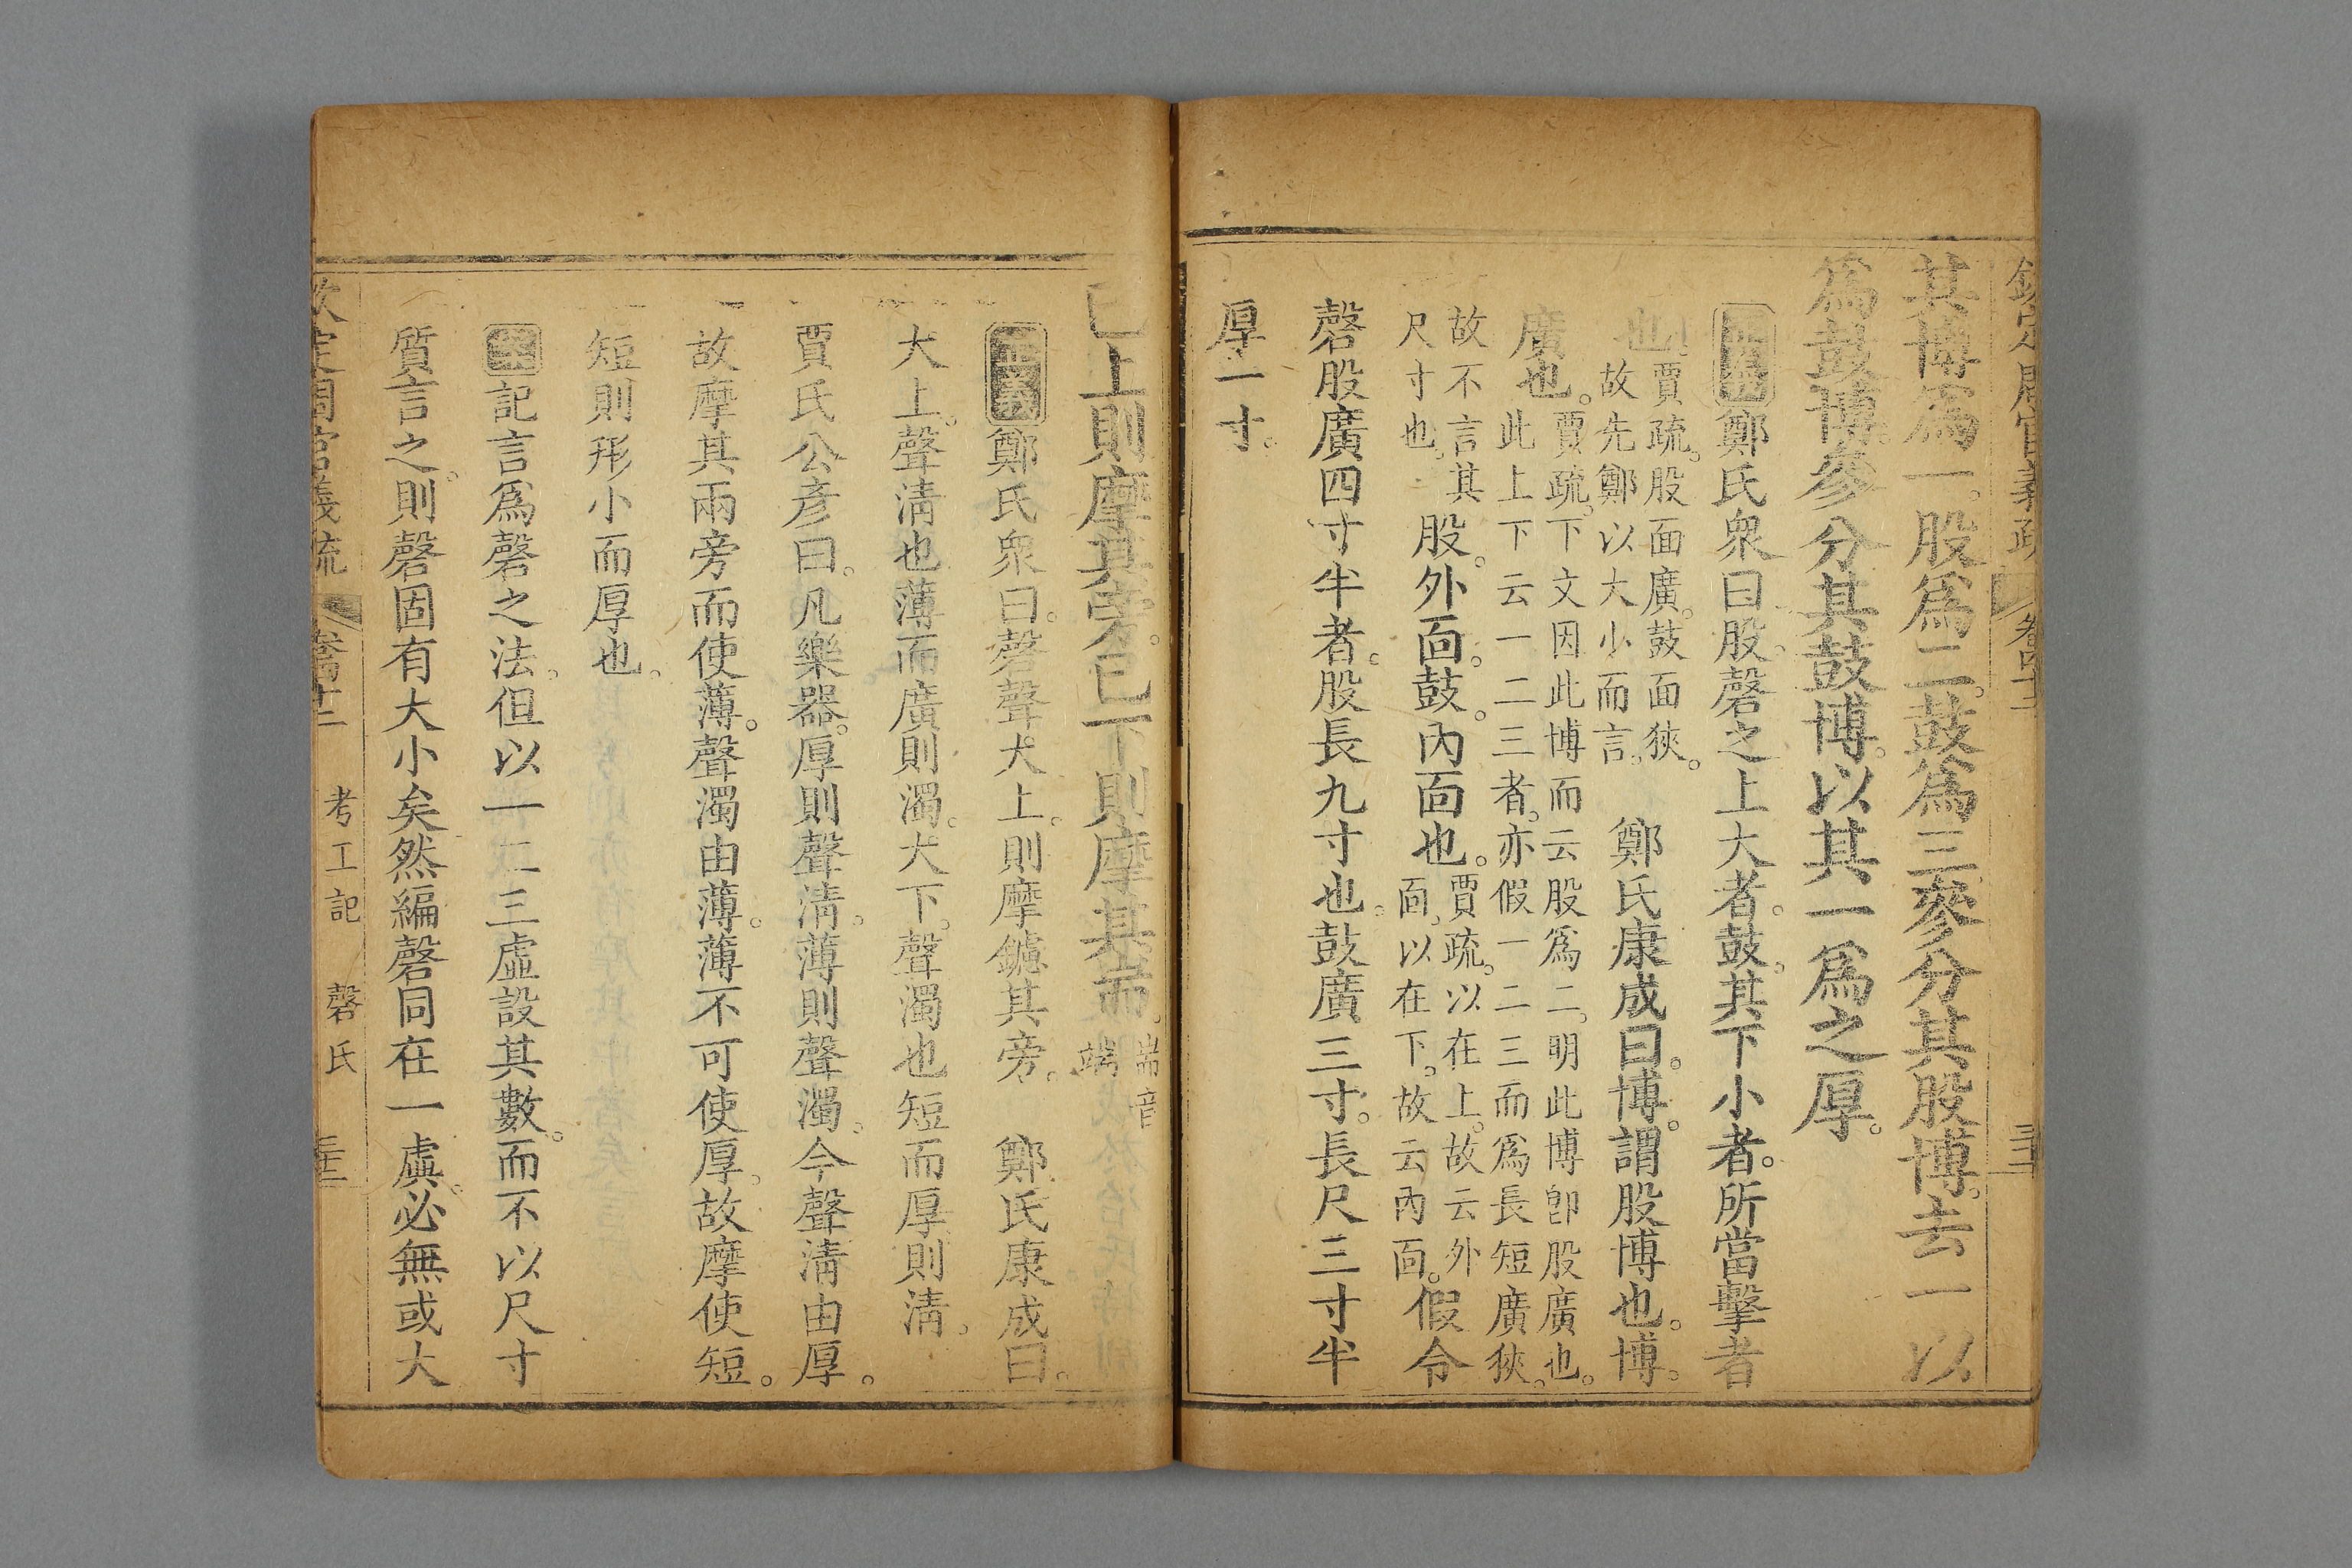 欽定周官義疏 卷四十二 三十二
其博爲一。股爲二。鼓爲三。參分其股博。去一以
爲鼓博。參分其鼓博。以其一爲之厚。
正義鄭氏衆曰。股。磬之上大者。鼓。其下小者。所當擊者
也。賈疏。股面廣。鼓面狹。
故先鄭以大小而言。
鄭氏康成曰。博。謂股博也。博。
廣也。賈疏。下文因此博而云股爲二。明此博卽股廣也。
此上下云一二三者。亦假一二三而爲長短廣狹。
故不言其
尺寸也。
股。外面。鼓。內面也。賈疏。以在上。故云外
面。以在下。故云內面。
假令
磬股廣四寸半者。股長九寸也。鼓廣三寸。長尺三寸半
厚一寸。
已上則摩其旁。已下則摩其耑。耑音
端
正義鄭氏衆曰。磬聲大上。則摩鑢其旁。 鄭氏康成曰。
大上。聲淸也薄而廣則濁。大下。聲濁也短而厚則淸。
賈氏公彥曰。凡樂器。厚則聲淸。薄則聲濁。今聲淸由厚。
故摩其兩旁而使薄。聲濁由薄。薄不可使厚。故摩使短。
短則形小而厚也。
案記言爲磬之法。但以一二三虛設其數。而不以尺寸
質言之。則磬固有大小矣然編磬同在一虡。必無或大
欽定周官義疏 卷四十二 考工記 磬氏 三十二